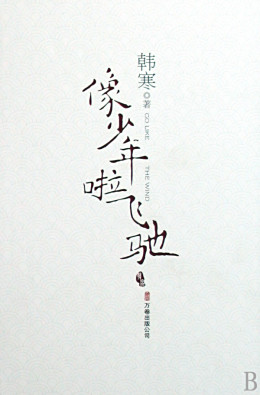 韩寒◎著
像少年啦飞驰
GO LIKE
THE WIND
万卷出版公司
B